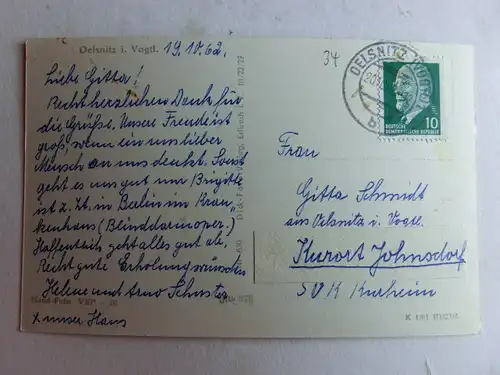 Oelsnitz i. Vogtl. 19.10.62.
Liebe Gitta!
Recht herzlichen Dank für
die Grüße. Unsere Freude ist
groß, wenn ein uns lieber
Mensch an uns denkt. Sonst
geht es uns gut nur Brigitte
ist z. Zt. in Berlin im Kran-
kenhaus (Blinddarmoper.)
Hoffentlich geht alles gut ab.
Recht gute Erholung wünschen
Helene und Arno Schuster
+ unser Hans
34
OELSNITZ (VOGTL)
DEUTSCHE
DEMOKRATISCHE REPUBLIK
10
Frau
Gitta Schmidt
aus Oelsnitz i. Vogtl.
Kurort Johnsdorf
SVK Kurheim